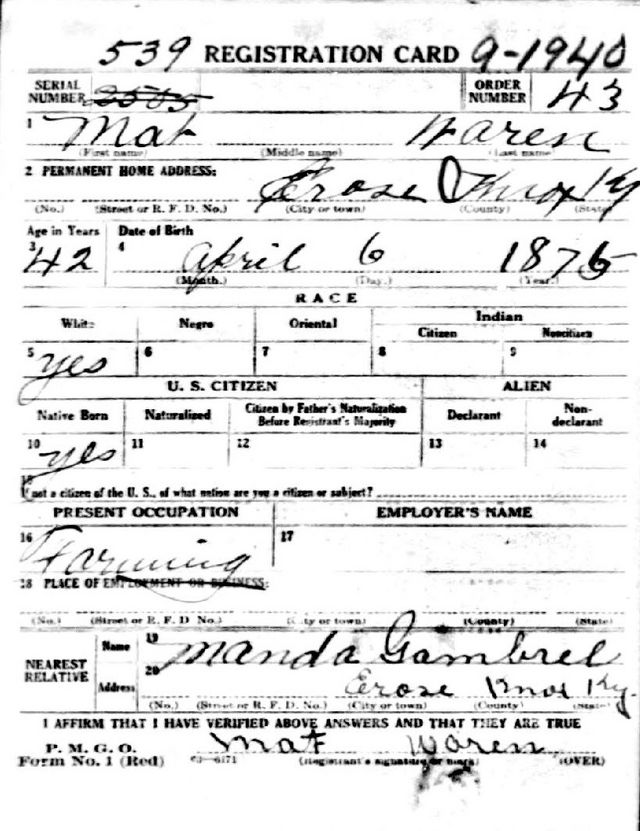 539 REGISTRATION CARD 9-1940
SERIAL NUMBER 2505 ORDER NUMBER 43
1 Mat Waren
(First name) (Middle name) (Last name)
2 PERMANENT HOME ADDRESS: Erose Knox Ky
(No.) (Street or R. F. D. No.) (City or town) (County) (State)
Age in Years Date of Birth
3 42 4 April 6 1876
(Month.) (Day.) (Year.)
RACE
White Negro Oriental Indian
Citizen Noncitizen
5 yes 6 7 8 9
U. S. CITIZEN ALIEN
Native Born Naturalized Citizen by Father's Naturalization Before Registrant's Majority Declarant Non-declarant
10 yes 11 12 13 14
15
If not a citizen of the U. S., of what nation are you a citizen or subject?
PRESENT OCCUPATION EMPLOYER'S NAME
16 Farming 17
18 PLACE OF EMPLOYMENT OR BUSINESS:
(No.) (Street or R. F. D. No.) (City or town) (County) (State)
NEAREST RELATIVE Name 19 Manda Gambrel
Address 20 Erose Knox Ky.
(No.) (Street or R. F. D. No.) (City or town) (County) (State)
I AFFIRM THAT I HAVE VERIFIED ABOVE ANSWERS AND THAT THEY ARE TRUE
P. M. G. O. Mat Waren
Form No. 1 (Red) 03—6171 (Registrant's signature or mark) (OVER)